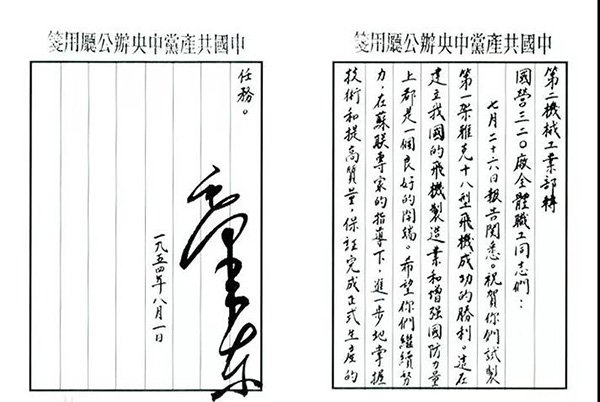 中國共產黨中央辦公廳用箋
第二機械工業部轉
國營三二〇廠全體職工同志們：
七月二十六日報告閱悉。祝賀你們試製
第一架雅克十八型飛機成功的勝利。這在
建立我國的飛機製造業和增强國防力量
上都是一個良好的開端。希望你們繼續努
力，在蘇联專家的指導下，進一步地掌握
技術和提高質量，保証完成正式生產的
中國共產黨中央辦公廳用箋
任務。
毛澤东
一九五四年八月一日